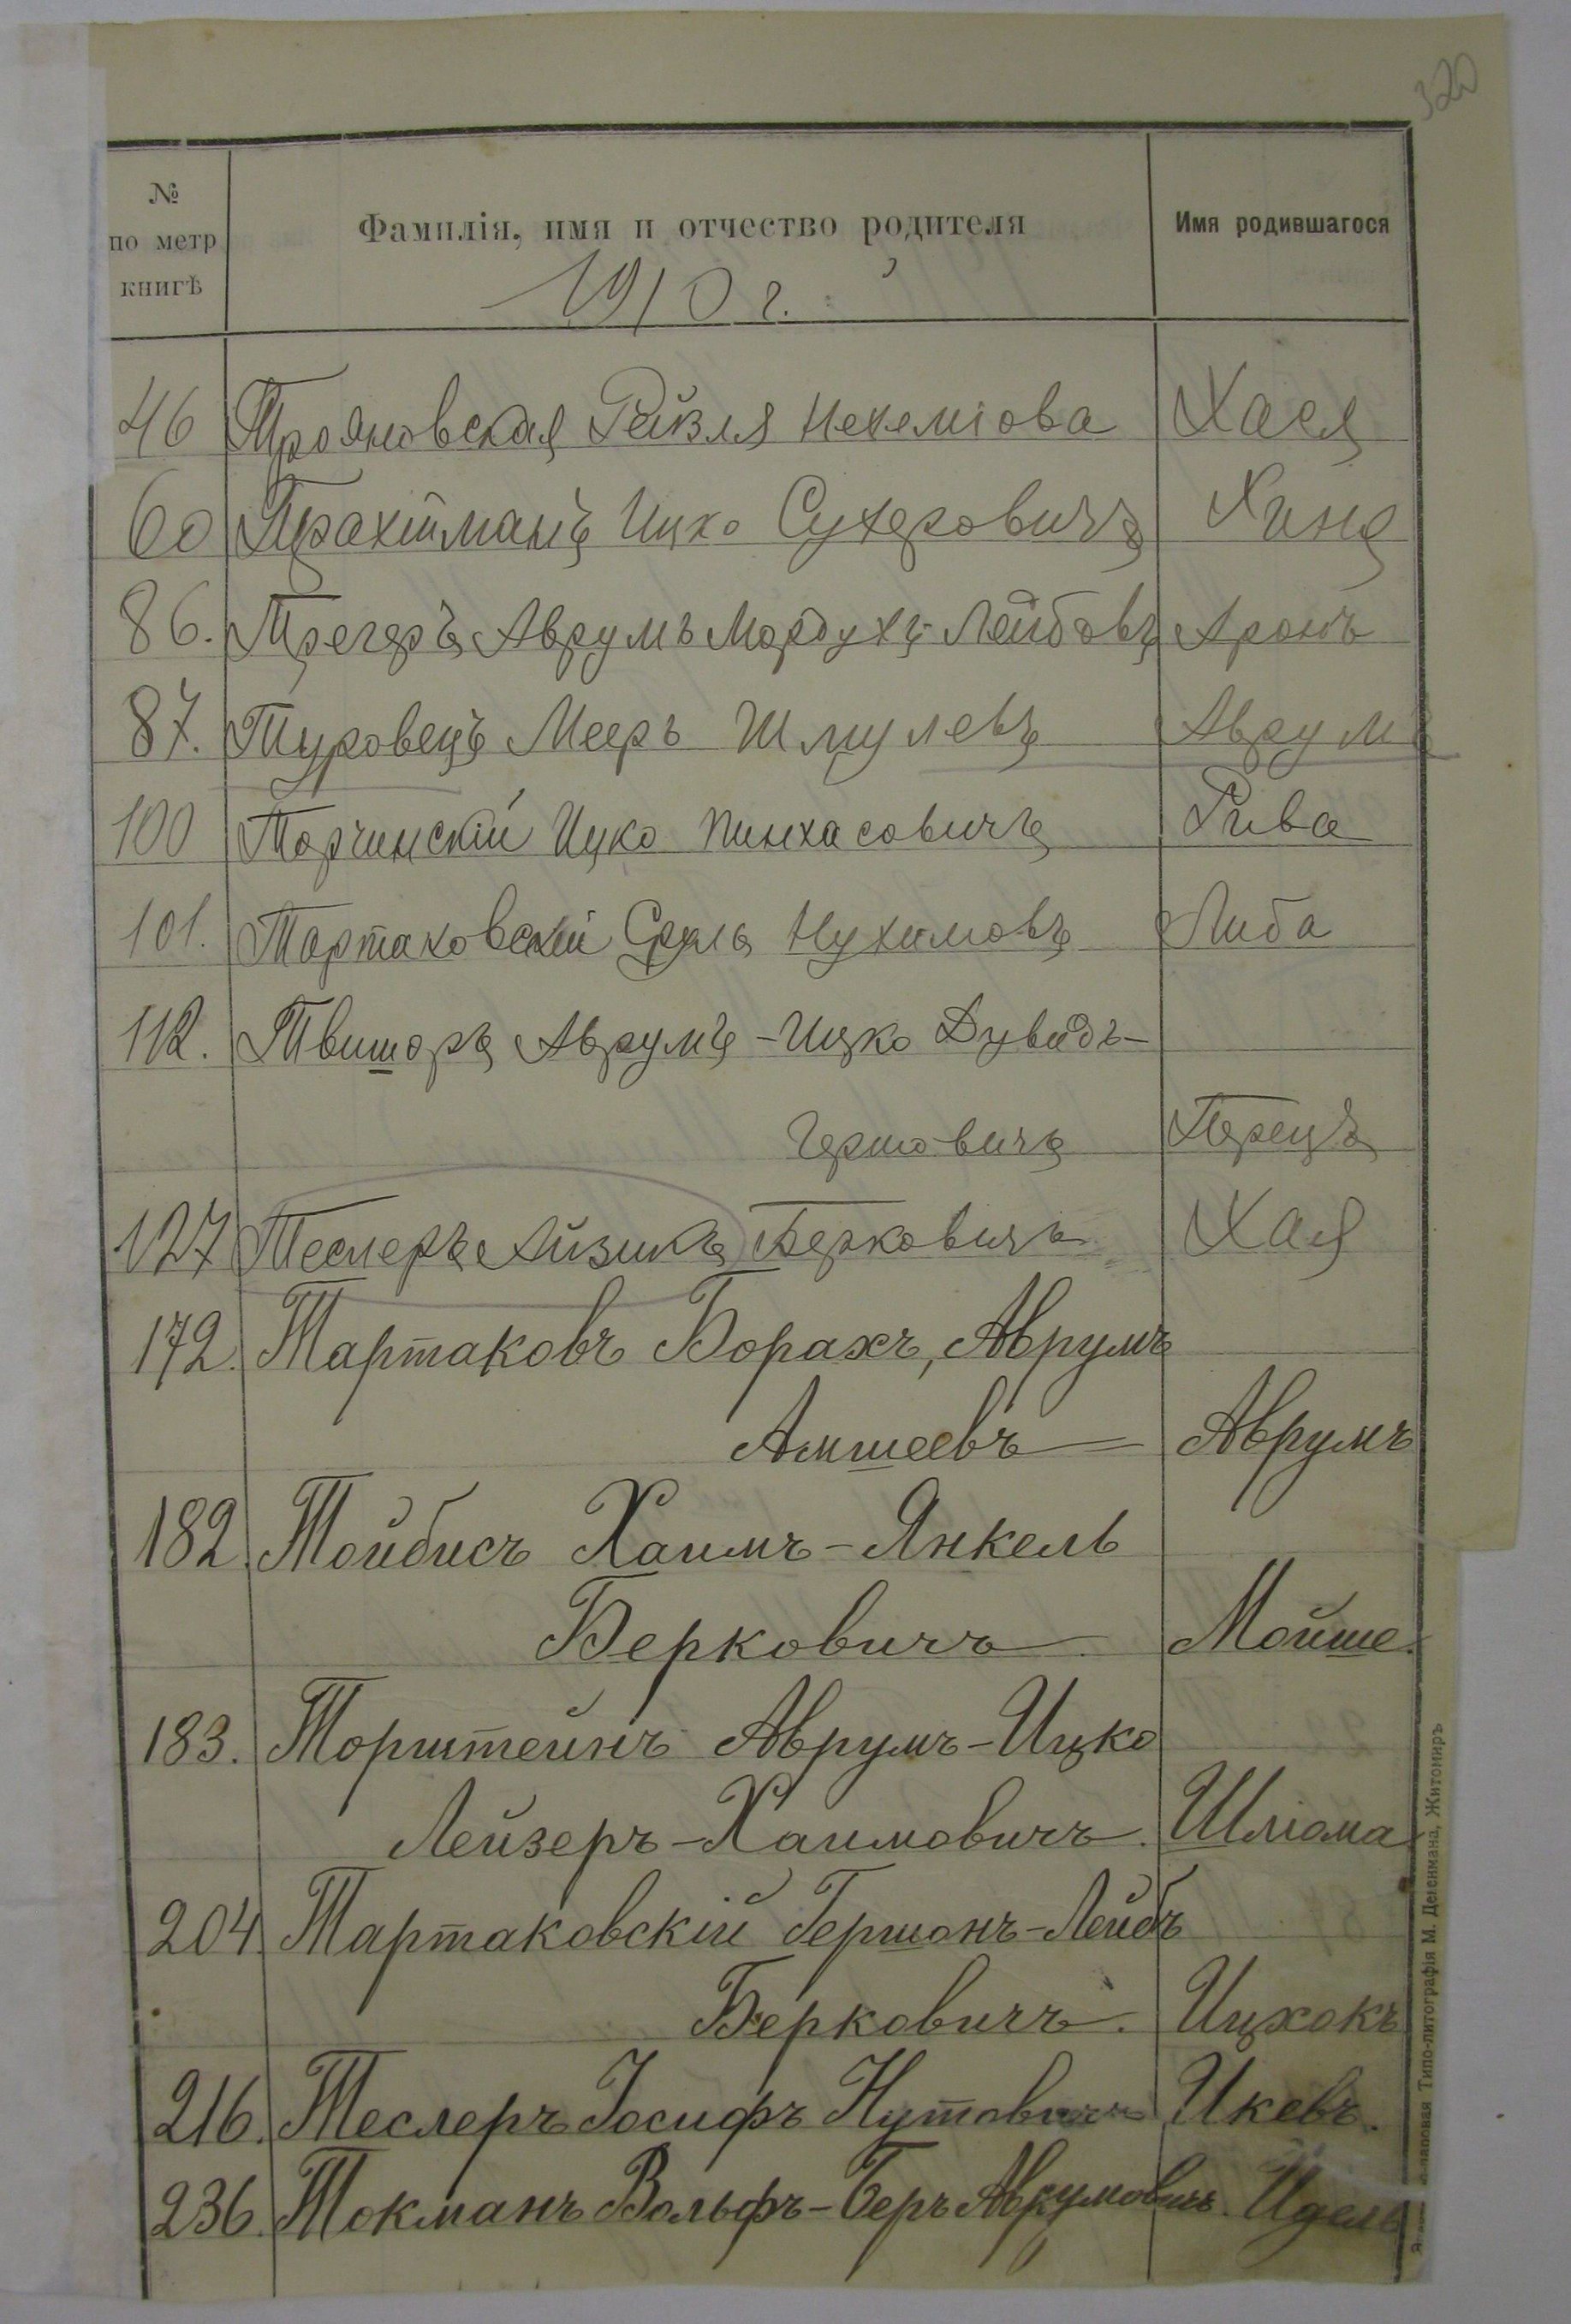 320
№ по метр книгѣ
Фамилія, имя и отчество родителя
Имя родившагося
1910 г.
46 Трояновская Рейзля Нехемiова Хася
60 Трахтманъ Ицко Сухеровичъ Хиня
86. Трегеръ Аврумъ Мордухъ-Лейбовъ Аронъ
87. Туровецъ Мееръ Шмулевъ Аврумъ
100 Торчинскій Ицко Пинхасовичъ Рива
101. Тартаковскій Сруль Нухимовъ Либа
112. Твишоръ Аврумъ-Ицко Дувидъ-
Гершовичъ Перецъ
127 Теслеръ Айзикъ Берковичъ Хая
172. Тартаковъ Борахъ, Аврумъ
Амшеевъ Аврумъ
182. Тойбисъ Хаимъ-Янкель
Берковичъ Мойше.
183. Торштейнъ Аврумъ-Ицко
Лейзеръ-Хаимовичъ. Шлiома
204. Тартаковскій Гершонъ-Лейбъ
Берковичъ. Ицхокъ
216. Теслеръ Іосифъ Нутовичъ Икевъ.
236. Токманъ Вольфъ-Беръ Аврумовичъ. Идель
Типо-литографія М. Дененмана, Житомиръ